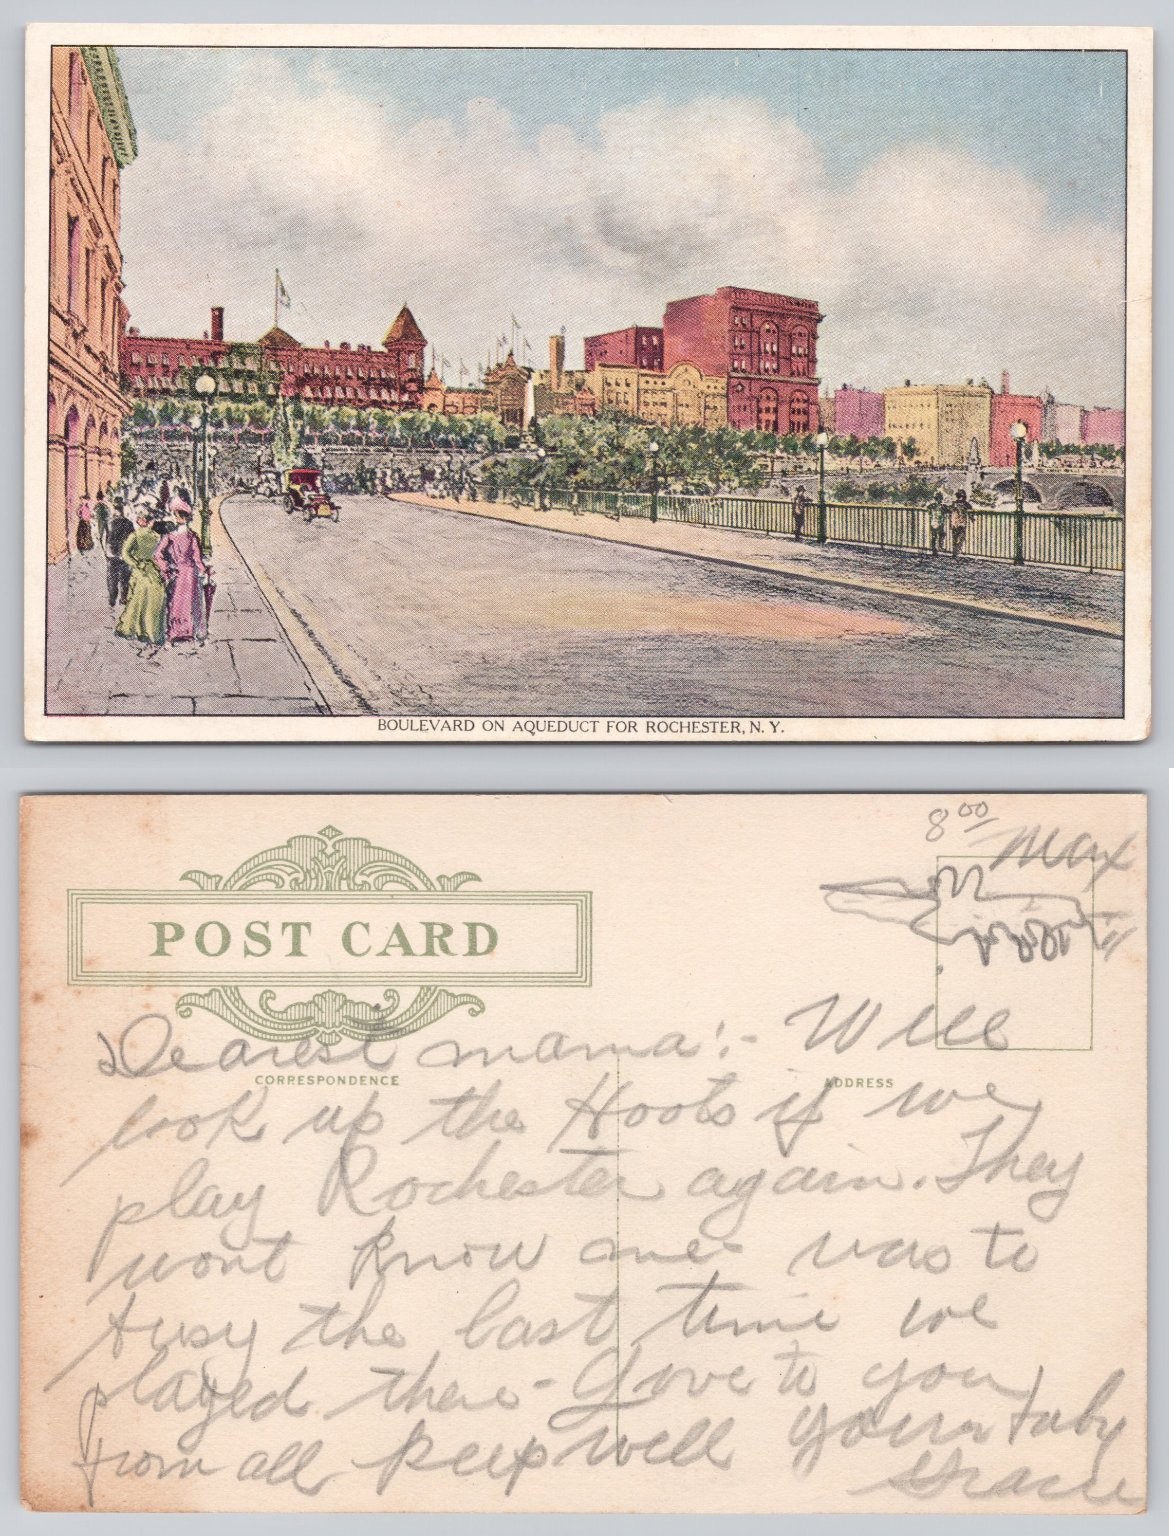 BOULEVARD ON AQUEDUCT FOR ROCHESTER, N. Y.
8 00
Max
POST CARD
CORRESPONDENCE
ADDRESS
Dearest mama:- Will
look up the Hoots if we
play Rochester again. They
wont know me - was to
busy the last time we
played there - Love to you
from all keep well your baby
Gracie